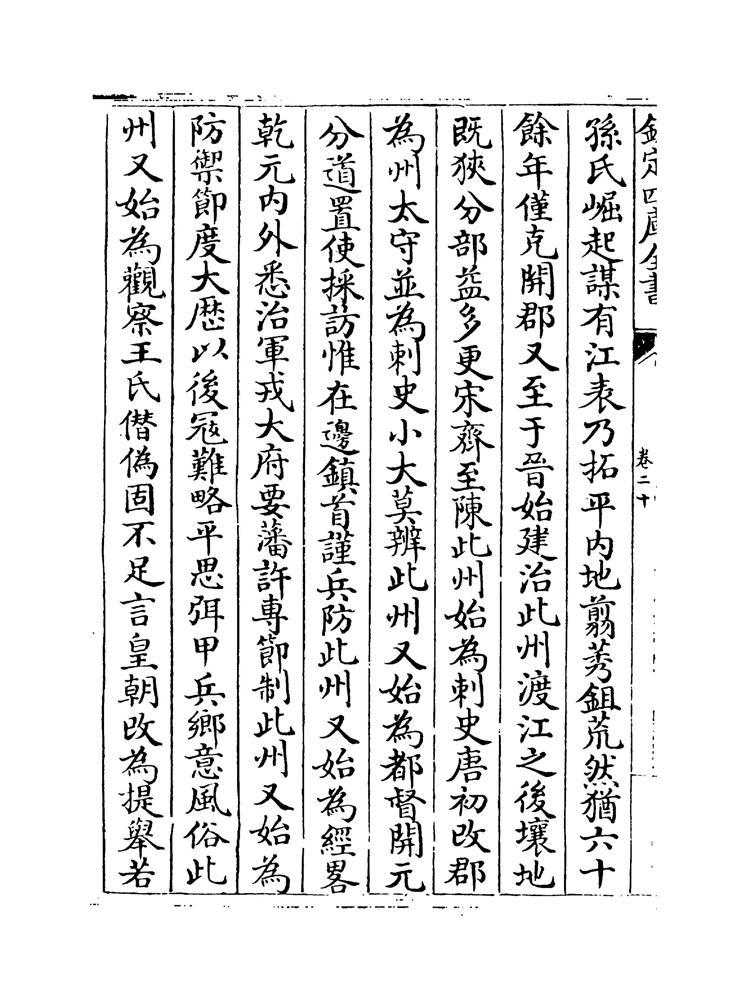 欽定四庫全書
卷二十
孫氏崛起謀有江表乃拓平内地翦莠鉏荒然猶六十
餘年僅克開郡又至于晉始建治此州渡江之後壤地
既狹分部益多更宋齊至陳此州始為刺史唐初改郡
為州太守並為刺史小大莫辨此州又始為都督開元
分道置使採訪惟在邊鎮首謹兵防此州又始為經畧
乾元内外悉治軍戎大府要藩許專節制此州又始為
防禦節度大厯以後冦難略平思弭甲兵鄉意風俗此
州又始為觀察王氏僭偽固不足言皇朝改為提舉若